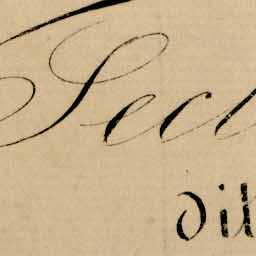 Sect
dil